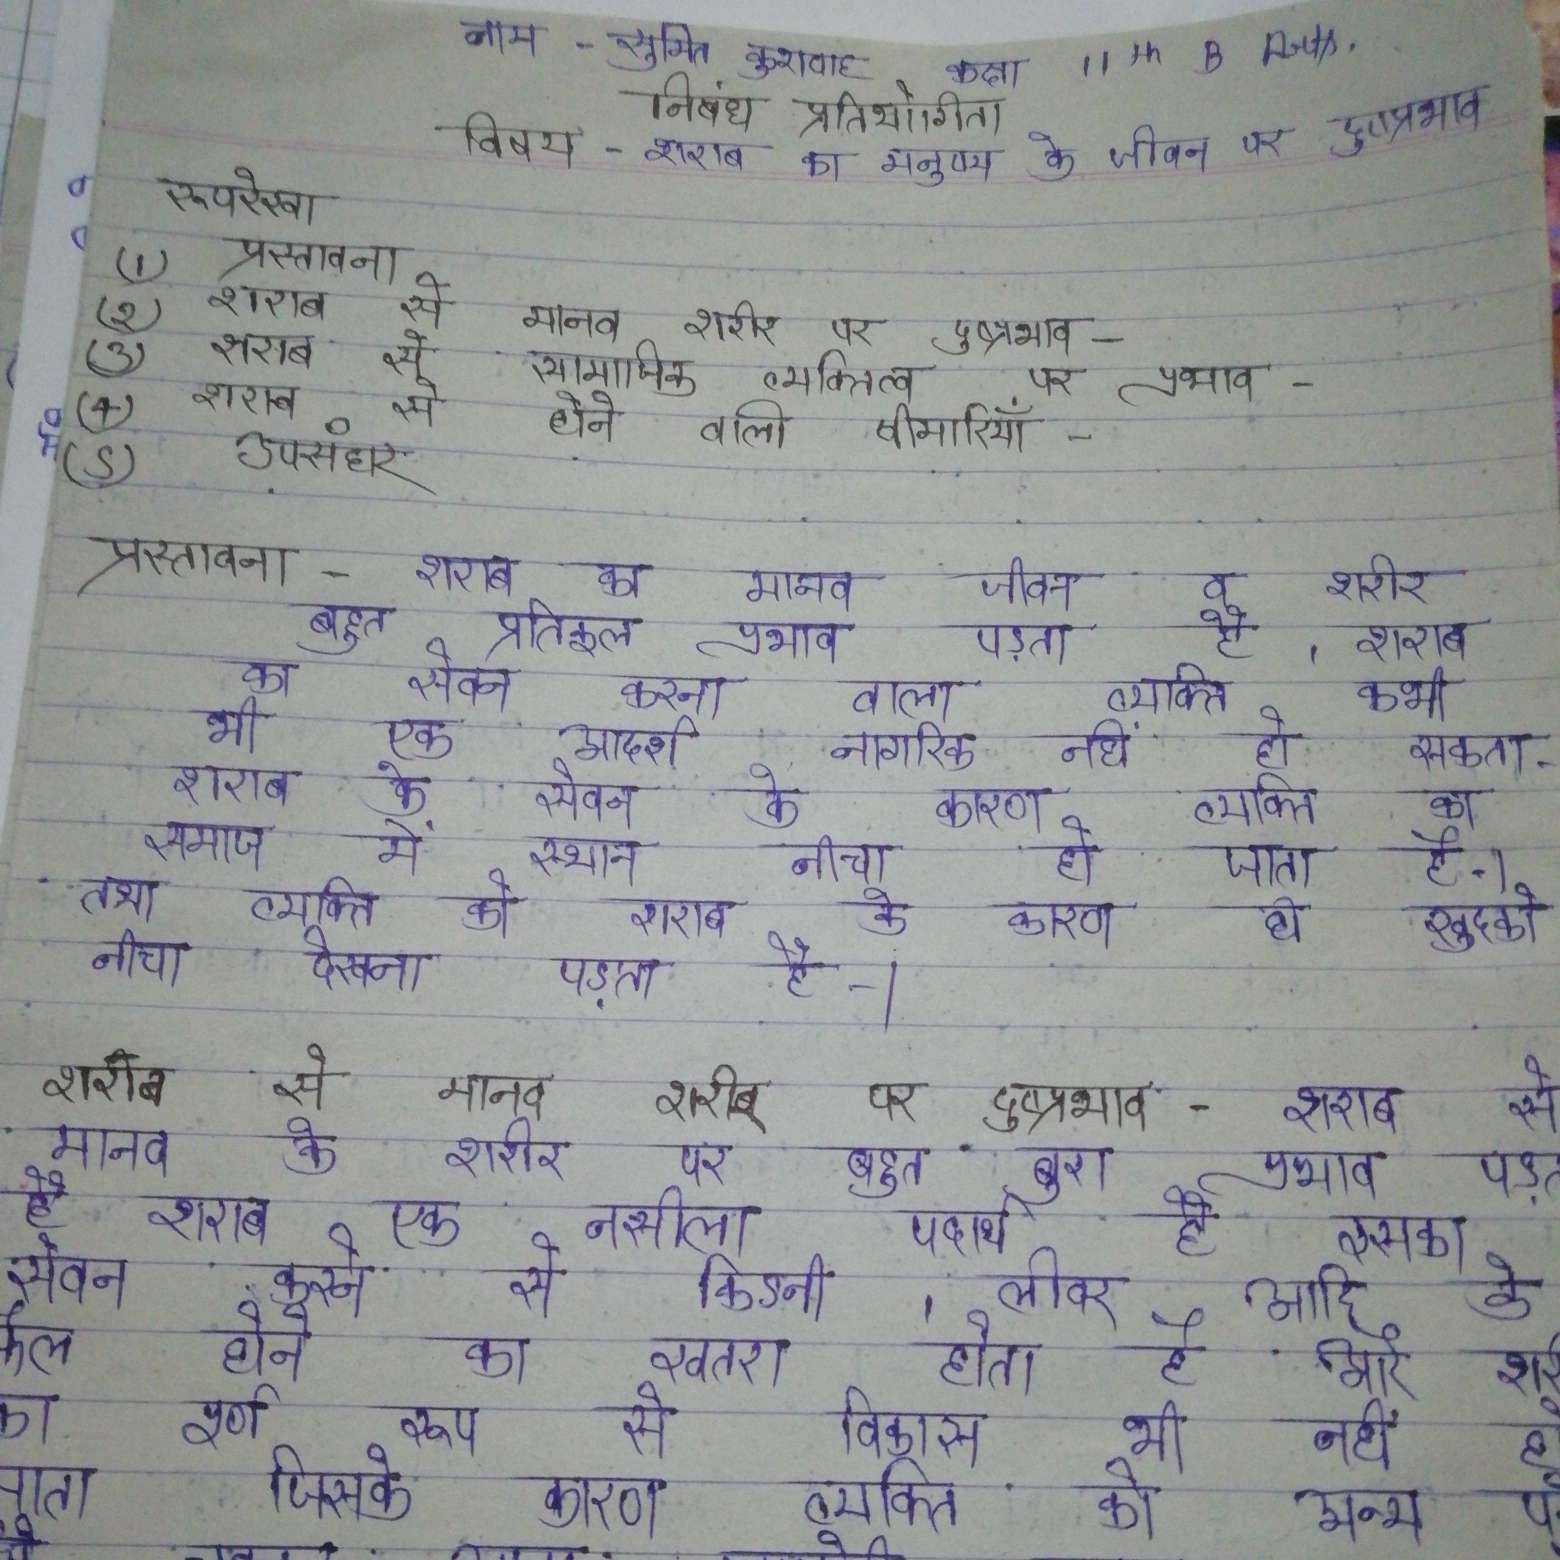 नाम - सुमित कुशवाह कक्षा 11 th B
निबंध प्रतियोगिता
विषय - शराब का मनुष्य के जीवन पर दुष्प्रभाव
रूपरेखा
(1) प्रस्तावना
(2) शराब से मानव शरीर पर दुष्प्रभाव -
(3) शराब से सामाजिक व्यक्तित्व पर प्रभाव -
(4) शराब से होने वाली बीमारियाँ -
(5) उपसंहार
प्रस्तावना - शराब का मानव जीवन व शरीर
बहुत प्रतिकूल प्रभाव पड़ता है, शराब
का सेवन करना वाला व्यक्ति कभी
भी एक आदर्श नागरिक नहीं हो सकता -
शराब के सेवन के कारण व्यक्ति का
समाज में स्थान नीचा हो जाता है -।
तथा व्यक्ति को शराब के कारण ही खुदको
नीचा देखना पड़ता है -।
शरीब से मानव शरीर पर दुष्प्रभाव - शराब से
मानव के शरीर पर बहुत बुरा प्रभाव पड़त
है शराब एक नसीला पदार्थ है इसका
सेवन करने से किडनी, लीवर आदि के
फेल होने का खतरा होता है और शरी
का पूर्ण रूप से विकास भी नहीं हो
पाता जिसके कारण व्यक्ति को अन्य